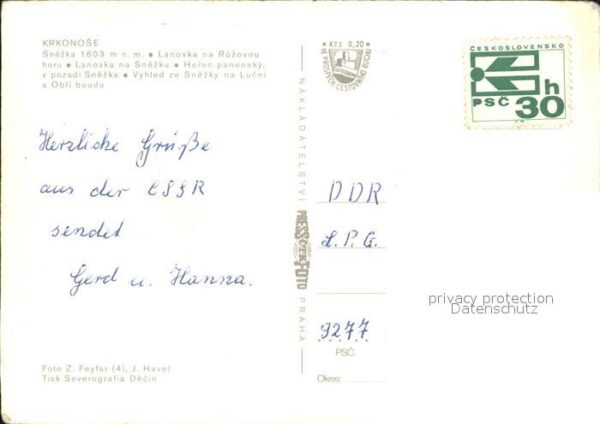 KRKONOŠE
Sněžka 1603 m n. m. • Lanovka na Růžovou
horu • Lanovka na Sněžku • Hořec panenský,
v pozadí Sněžka • Výhled ze Sněžky na Luční
a Obří boudu
Herzliche Grüße
aus der ČSSR
sendet
Gerd u. Hanna.
Foto Z. Feyfar (4), J. Havel
Tisk Severografia Děčín
Kčs 0,20
VE PROSPĚCH CESTOVNÍHO RUCHU
NAKLADATELSTVÍ
PRESSFOTO
PRAHA
ČESKOSLOVENSKO
PSČ 30 h
DDR
L.P.G.
9277
PSČ
Okres:
privacy protection
Datenschutz